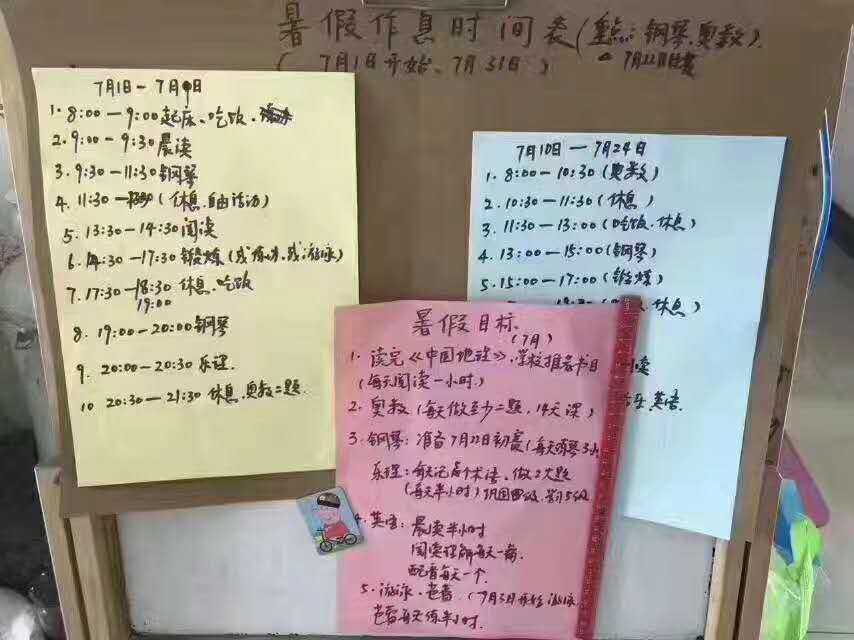 暑假作息时间表(重点:钢琴.奥数).
(7月1日开始、7月31日)
7月22日比赛
7月1日—7月9日
1.8:00—9:00起床、吃饭.
2.9:00—9:30晨读
3.9:30—11:30钢琴
4.11:30— (休息.自由活动)
5.13:30—14:30阅读
6.14:30—17:30锻炼(或 .或游泳)
7.17:30—18:30休息.吃饭
19:00
8.19:00—20:00钢琴
9.20:00—20:30乐理.
10 20:30—21:30休息.奥数二题.
7月10日—7月24日
1.8:00—10:30(奥数)
2.10:30—11:30(休息)
3.11:30—13:00(吃饭.休息)
4.13:00—15:00(钢琴)
5.15:00—17:00(锻炼)
.休息)
读
英语.
暑假目标.
(7月)
1.读完《中国地理》.学校推荐书目
(每天阅读一小时.)
2.奥数(每天做至少二题,14天课)
3.钢琴:准备7月22日初赛(每天练琴3小
乐理:每天记 个术语、做2大题
(每天半小时)巩固四级.
4.英语:晨读半小时
阅读理解每天一篇
配音每天一个.
5.游泳、芭蕾.(7月3日开始游泳
芭蕾每天练半小时.